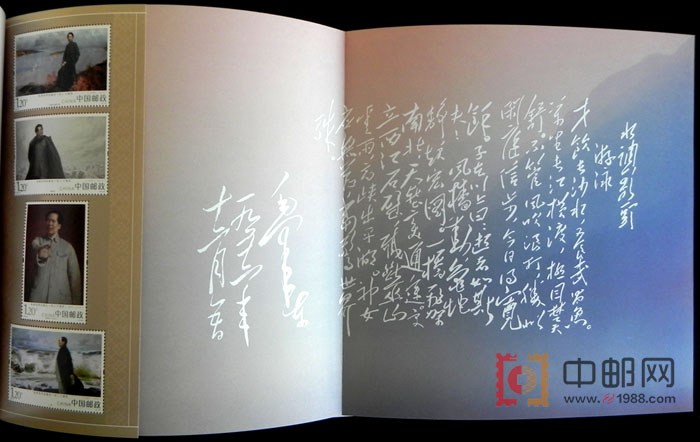 1.20 中国邮政
1.20 中国邮政
1.20 中国邮政
1.20 中国邮政
水调歌头
游泳
才饮长沙水又食武昌鱼。
万里长江横渡,极目楚天
舒不管风吹浪打胜似
闲庭信步今日得宽
馀子在川上曰逝者如斯
夫!风樯动龟蛇
静起宏图一桥飞架
南北天堑变通途更
立西江石壁截断巫山
云雨高峡出平湖。神女
应无恙当惊世界
殊
毛泽东
一九五六年
十二月五日
中邮网
www.e1988.com